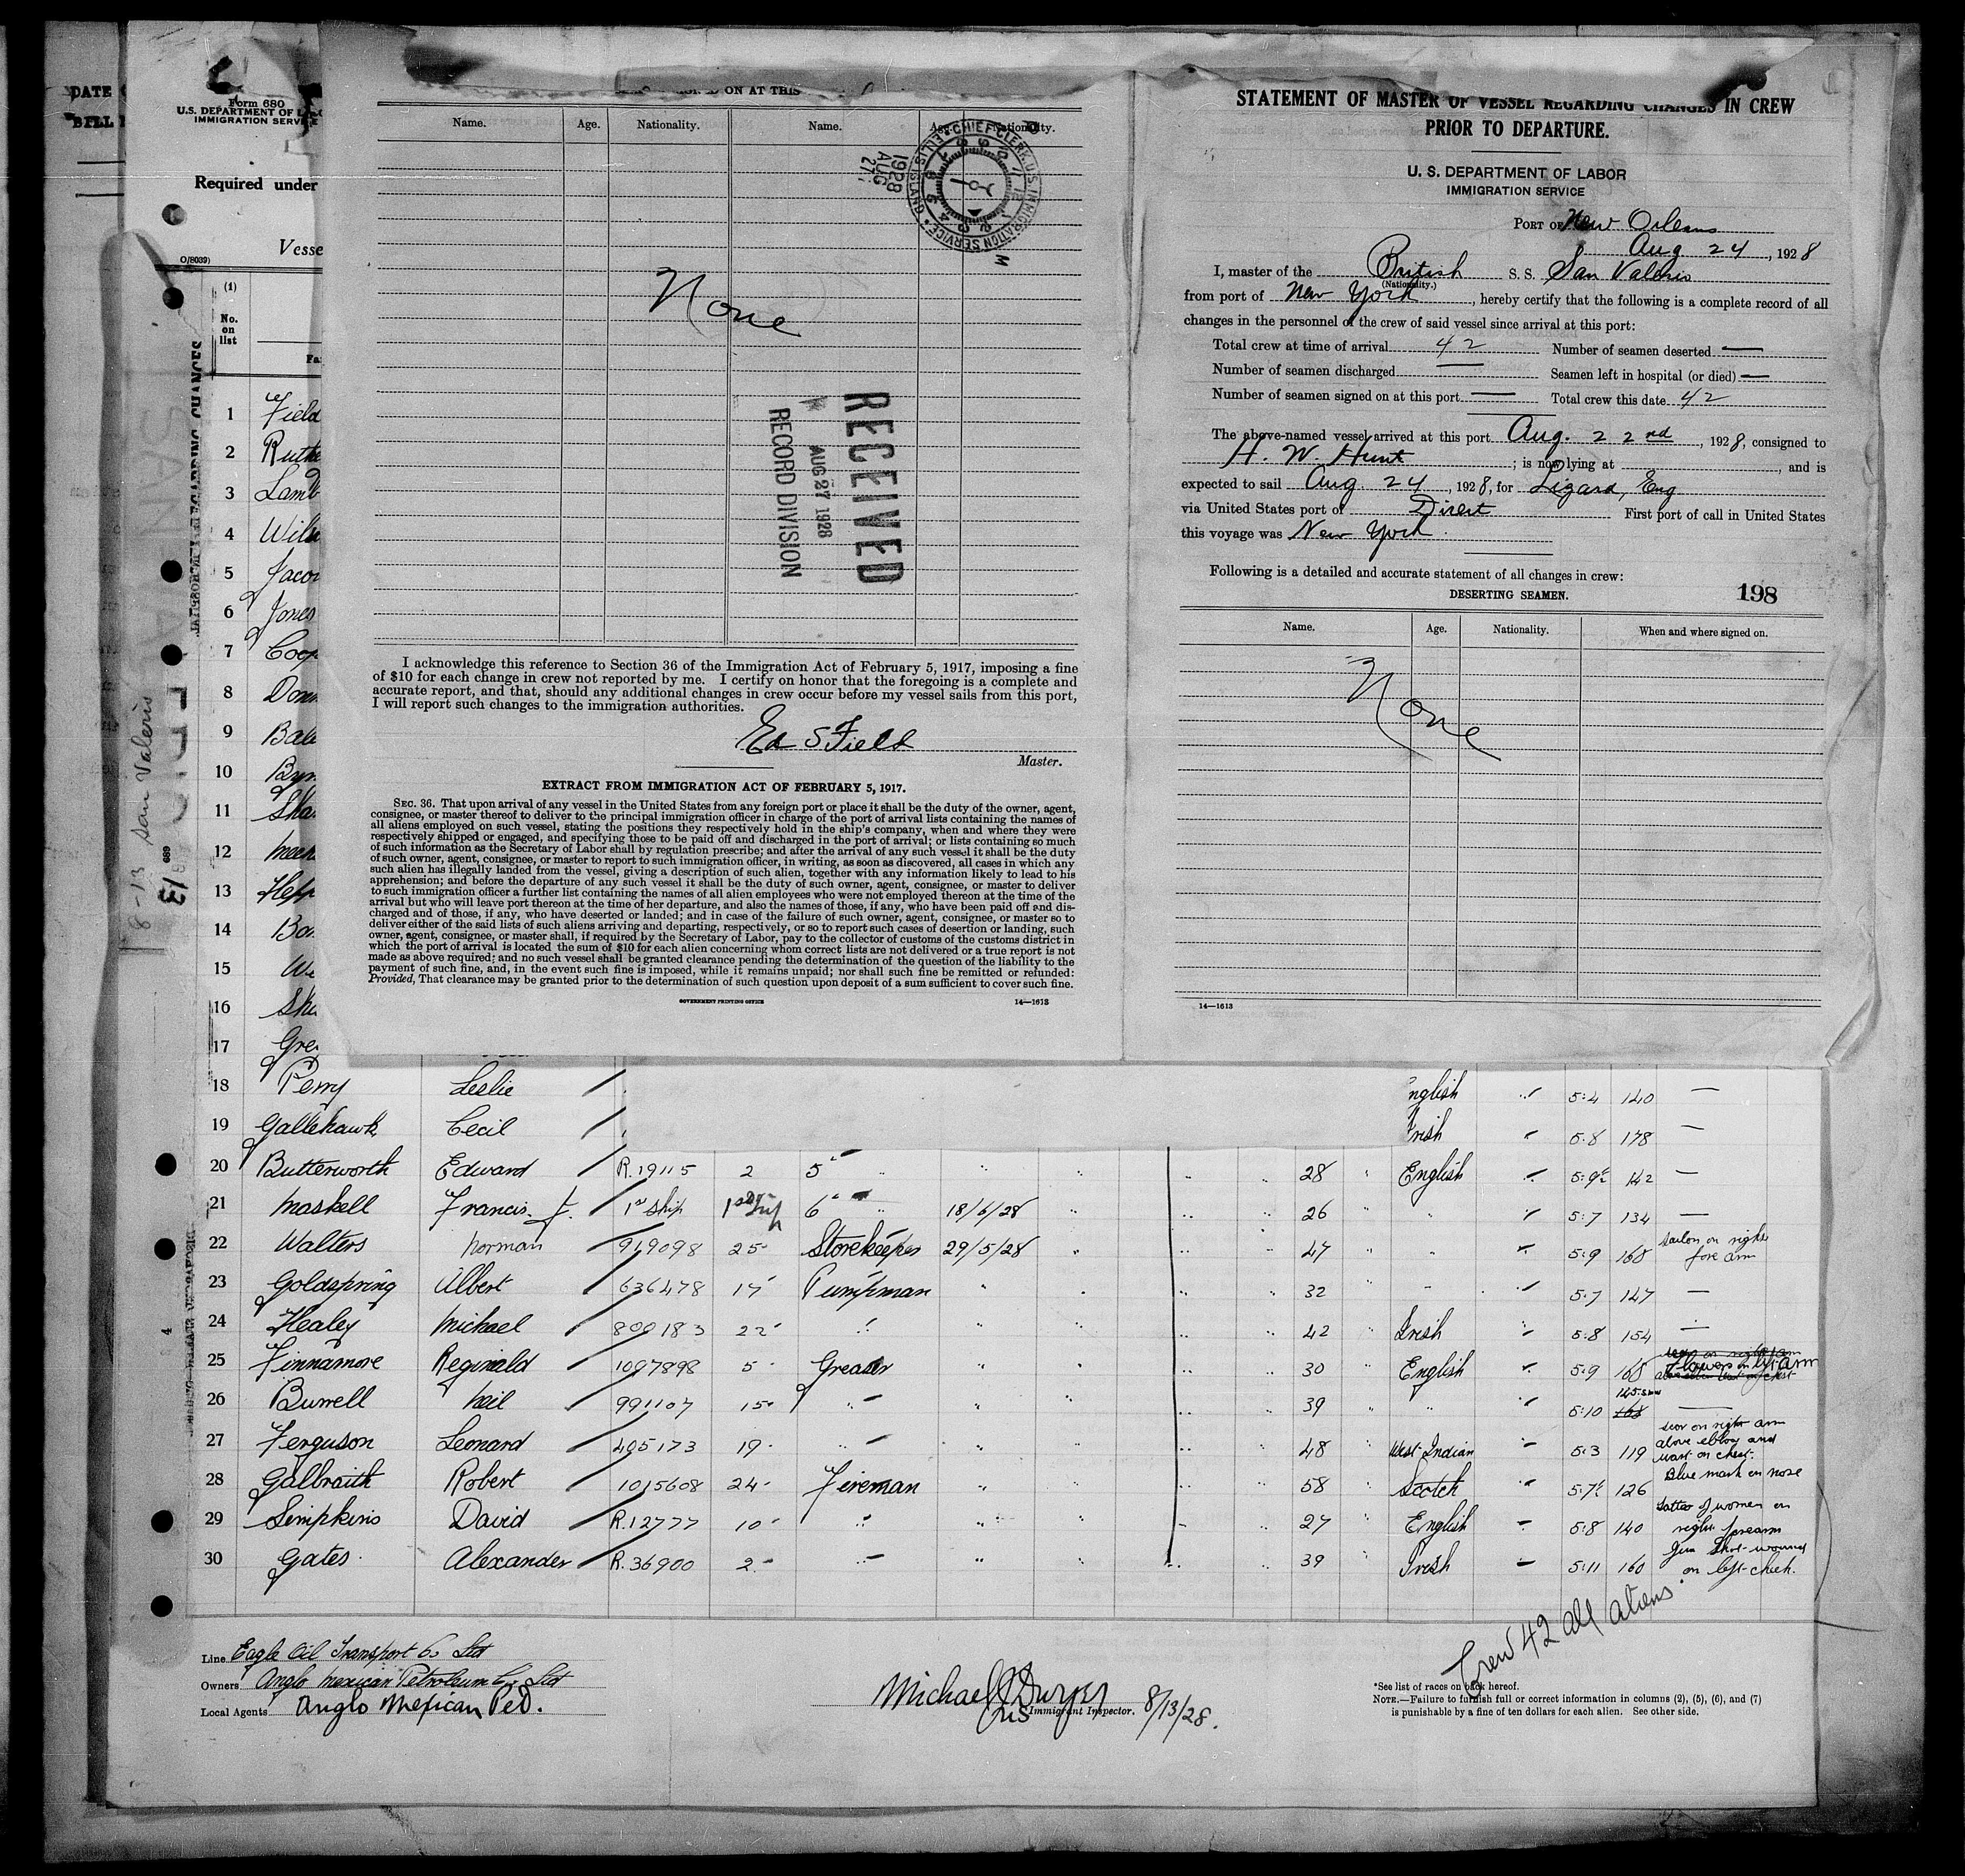 DATE
Form 680
U.S. DEPARTMENT OF
IMMIGRATION SERVICE
Required under
O/8039)
(1)
No.
on
list
ON AT THIS
Name. Age. Nationality. Name. Age. Nationality.
CHIEF CLERK, U.S. IMMIGRATION SERVICE ELLIS ISLAND
1928
AUG
27
None
RECEIVED
AUG 27 1928
RECORD DIVISION
I acknowledge this reference to Section 36 of the Immigration Act of February 5, 1917, imposing a fine
of $10 for each change in crew not reported by me. I certify on honor that the foregoing is a complete and
accurate report, and that, should any additional changes in crew occur before my vessel sails from this port,
I will report such changes to the immigration authorities.
Ed S Field
Master.
EXTRACT FROM IMMIGRATION ACT OF FEBRUARY 5, 1917.
SEC. 36. That upon arrival of any vessel in the United States from any foreign port or place it shall be the duty of the owner, agent,
consignee, or master thereof to deliver to the principal immigration officer in charge of the port of arrival lists containing the names of
all aliens employed on such vessel, stating the positions they respectively hold in the ship's company, when and where they were
respectively shipped or engaged, and specifying those to be paid off and discharged in the port of arrival; or lists containing so much
of such information as the Secretary of Labor shall by regulation prescribe; and after the arrival of any such vessel it shall be the duty
of such owner, agent, consignee, or master to report to such immigration officer, in writing, as soon as discovered, all cases in which any
such alien has illegally landed from the vessel, giving a description of such alien, together with any information likely to lead to his
apprehension; and before the departure of any such vessel it shall be the duty of such owner, agent, consignee, or master to deliver
to such immigration officer a further list containing the names of all alien employees who were not employed thereon at the time of the
arrival but who will leave port thereon at the time of her departure, and also the names of those, if any, who have been paid off and dis-
charged and of those, if any, who have deserted or landed; and in case of the failure of such owner, agent, consignee, or master so to
deliver either of the said lists of such aliens arriving and departing, respectively, or so to report such cases of desertion or landing, such
owner, agent, consignee, or master shall, if required by the Secretary of Labor, pay to the collector of customs of the customs district in
which the port of arrival is located the sum of $10 for each alien concerning whom correct lists are not delivered or a true report is not
made as above required; and no such vessel shall be granted clearance pending the determination of the question of the liability to the
payment of such fine, and, in the event such fine is imposed, while it remains unpaid; nor shall such fine be remitted or refunded:
Provided, That clearance may be granted prior to the determination of such question upon deposit of a sum sufficient to cover such fine.
GOVERNMENT PRINTING OFFICE 14—1613
STATEMENT OF MASTER OF VESSEL REGARDING CHANGES IN CREW
PRIOR TO DEPARTURE.
U. S. DEPARTMENT OF LABOR
IMMIGRATION SERVICE
PORT OF New Orleans
Aug 24, 1928
I, master of the British S. S. San Valerio
(Nationality.)
from port of New York, hereby certify that the following is a complete record of all
changes in the personnel of the crew of said vessel since arrival at this port:
Total crew at time of arrival 42 Number of seamen deserted —
Number of seamen discharged — Seamen left in hospital (or died) —
Number of seamen signed on at this port — Total crew this date 42
The above-named vessel arrived at this port Aug. 22nd, 1928, consigned to
H. W. Hunt; is now lying at , and is
expected to sail Aug 24, 1928, for Lizard, Eng
via United States port of Direct First port of call in United States
this voyage was New York.
Following is a detailed and accurate statement of all changes in crew:
DESERTING SEAMEN. 198
Name. Age. Nationality. When and where signed on.
None
14—1613
8-13 San Valerio
1 Field
2
3 Lamb
4
5
6 Jones
7
8
9
10
11
12
13
14
15
16
17
18 Perry Leslie nglish 5:4 140 —
19 Gallehawk Cecil rish 5.8 178 —
20 Butterworth Edward R.19115 2 5" 28 English 5:9½ 142 —
21 Maskell Francis. J. 1st Ship 1st Trip 6" 18/6/28 26 " 5:7 134 —
22 Walters Norman 919098 25 Storekeeper 29/5/28 47 " 5:9 168 sailor on right fore arm
23 Goldspring Albert 636478 17 Pumpman " 32 " 5:7 147 —
24 Healey Michael 800183 22 " " 42 Irish 5:8 154 —
25 Finnamore Reginald 1097898 5 Greaser " 30 English 5:9 168 Flowers on left arm
26 Burrell Neil 991107 15 " " 39 " 5:10 145
27 Ferguson Leonard 405173 19 " " 48 West-Indian 5:3 119 scar on right arm above elbow and wart on chest.
28 Galbraith Robert 1015608 24 Fireman " 58 Scotch 5:7½ 126 Blue mark on nose
29 Simpkins David R.12777 10 " " 27 English 5:8 140 Tattoo of women on right forearm
30 Gates Alexander R.36900 2 " " 39 Irish 5:11 160 Gun Shot-wound on left-cheek.
Crew 42 all aliens.
Line Eagle Oil Transport Co Ltd
Owners Anglo Mexican Petroleum Co. Ltd
Local Agents Anglo Mexican Pet.
Michael J Dwyer
Immigrant Inspector. 8/13/28.
*See list of races on back hereof.
NOTE.—Failure to furnish full or correct information in columns (2), (5), (6), and (7)
is punishable by a fine of ten dollars for each alien. See other side.